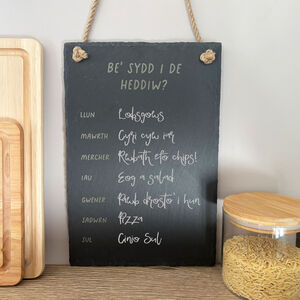 BE' SYDD I DE
HEDDIW?
LLUN Lobsgows
MAWRTH Cyri cyw iâr
MERCHER Rwbath efo chips!
IAU Eog a salad
GWENER Pawb drosto'i hun
SADWRN Pizza
SUL Cinio Sul